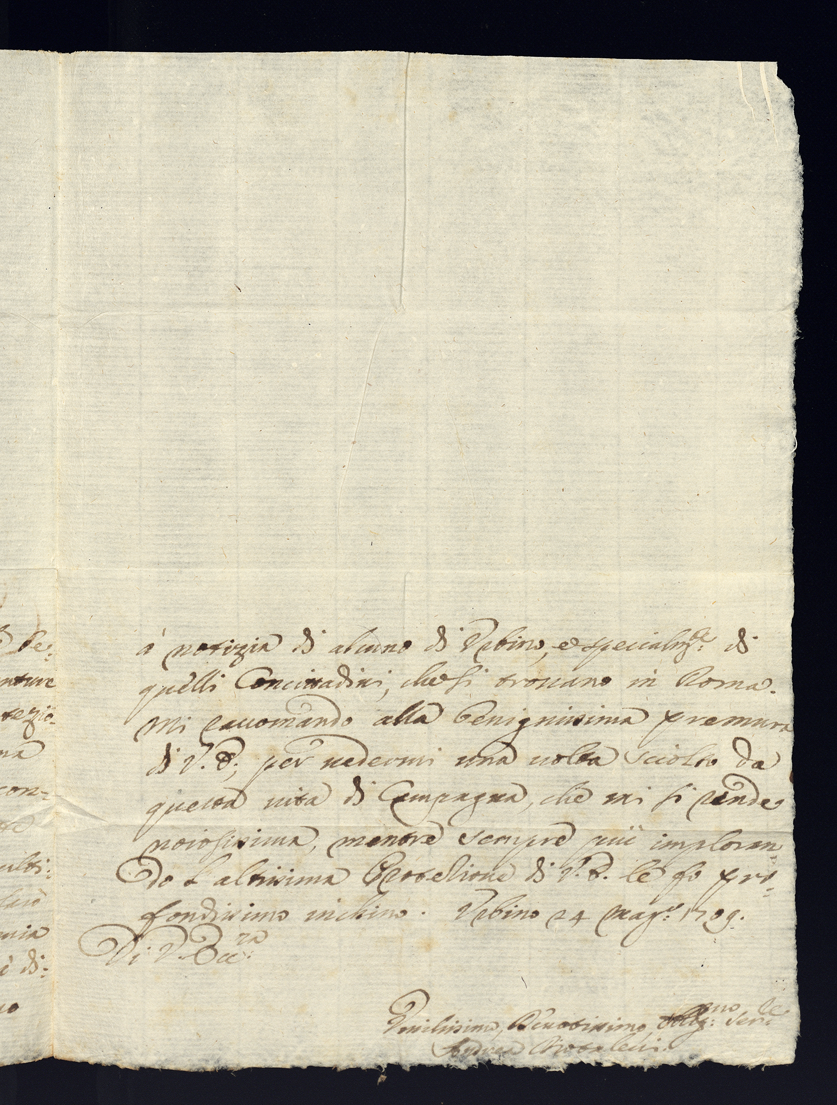 à notizia di alcuno di Urbino, e specialm.te di
quelli Concittadini, che si trovano in Roma.
Mi raccomando alla benignissima premura
di V. E., per vedermi una volta sciolto da
questa vita di Campagna, che mi si rende
noiosissima, mentre sempre più imploran
do l'altissima Protezione di V. E. le fo pro-
fondissimo inchino. Urbino 24 Mag.o 1709.
Di V. Ecc.za
Umilissimo, Devotissimo, Obblig.mo Ser.e
Andrea